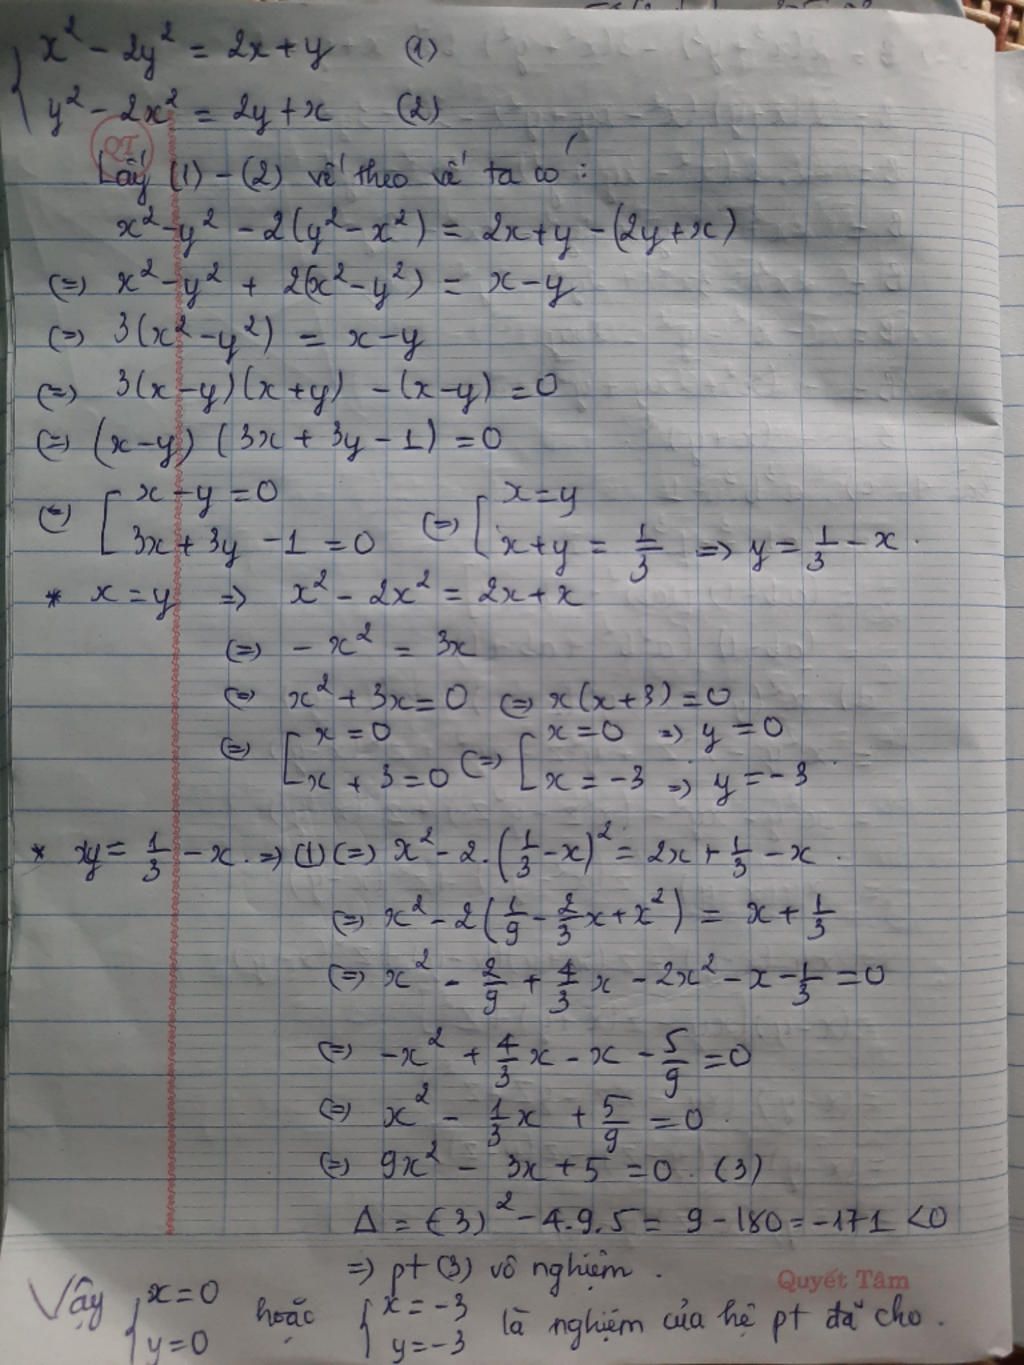 { x² - 2y² = 2x + y (1)
y² - 2x² = 2y + x (2)
QT
Lấy (1) - (2) vế theo vế ta có:
x² - y² - 2(y² - x²) = 2x + y - (2y + x)
(=) x² - y² + 2(x² - y²) = x - y
(=) 3(x² - y²) = x - y
(=) 3(x - y)(x + y) - (x - y) = 0
(=) (x - y)(3x + 3y - 1) = 0
(=) [ x - y = 0 (=) [ x = y
3x + 3y - 1 = 0 x + y = 1/3 => y = 1/3 - x.
* x = y => x² - 2x² = 2x + x
(=) - x² = 3x
(=) x² + 3x = 0 (=) x(x + 3) = 0
(=) [ x = 0 (=) [ x = 0 => y = 0
x + 3 = 0 x = -3 => y = -3
* xy = 1/3 - x. => (1) (=) x² - 2.(1/3 - x)² = 2x + 1/3 - x.
(=) x² - 2(1/9 - 2/3x + x²) = x + 1/3
(=) x² - 2/9 + 4/3 x - 2x² - x - 1/3 = 0
(=) -x² + 4/3 x - x - 5/9 = 0
(=) x² - 1/3 x + 5/9 = 0
(=) 9x² - 3x + 5 = 0. (3)
Δ = (-3)² - 4.9.5 = 9 - 180 = -171 < 0
=> pt (3) vô nghiệm.
Quyết Tâm
Vậy { x = 0 hoặc { x = -3 là nghiệm của hệ pt đã cho.
y = 0 y = -3